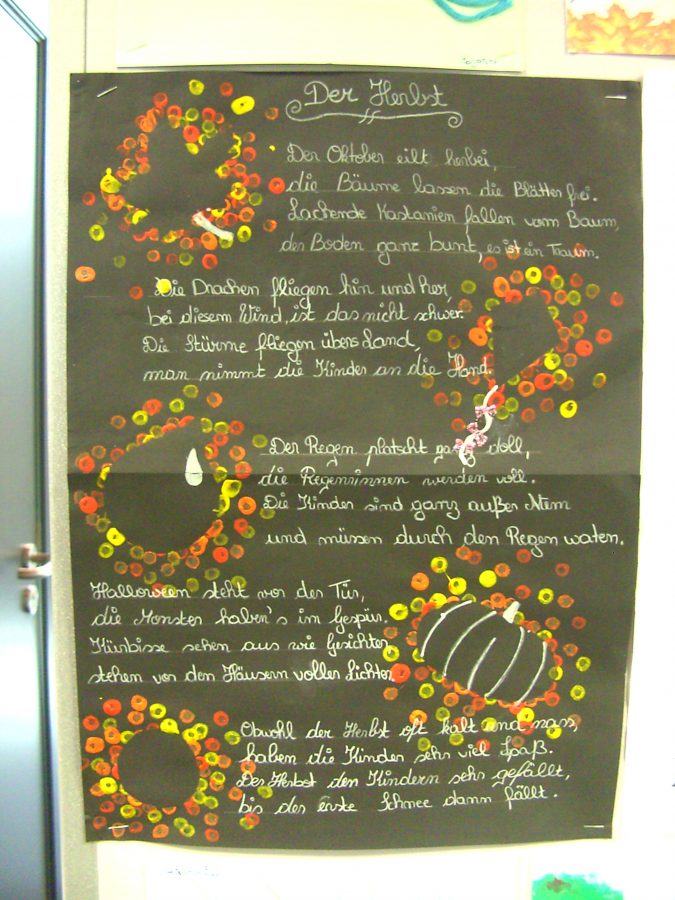 Der Herbst
Der Oktober eilt herbei,
die Bäume lassen die Blätter frei.
Lachende Kastanien fallen vom Baum,
der Boden ganz bunt, es ist ein Traum.
Die Drachen fliegen hin und her,
bei diesem Wind, ist das nicht schwer.
Die Stürme fliegen übers Land,
man nimmt die Kinder an die Hand.
Der Regen platscht doll,
die Regenrinnen werden voll.
Die Kinder sind ganz außer Atem
und müssen durch den Regen waten.
Halloween steht vor der Tür,
die Monster haben's im Gespür.
Kürbisse sehen aus wie Gesichter,
stehen vor den Häusern voller Lichter.
Obwohl der Herbst oft kalt und nass,
haben die Kinder sehr viel Spaß.
Der Herbst den Kindern sehr gefällt,
bis der erste Schnee dann fällt.